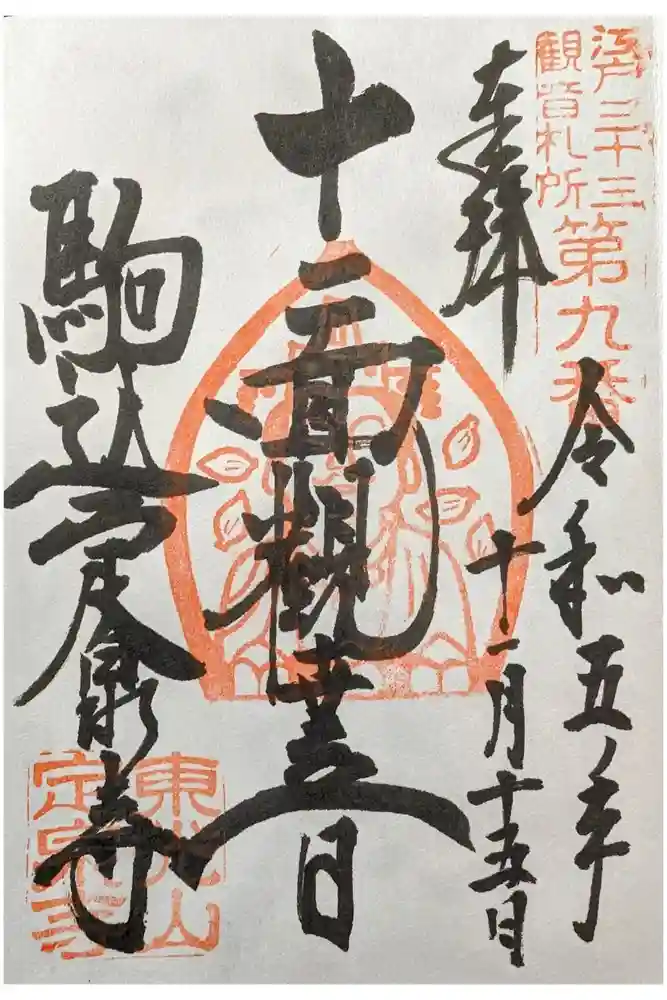 江戸三十三
観音札所
第九番
奉拝
令和五年
十一月十五日
十一面観世音
駒込定泉寺
東光山
定泉寺